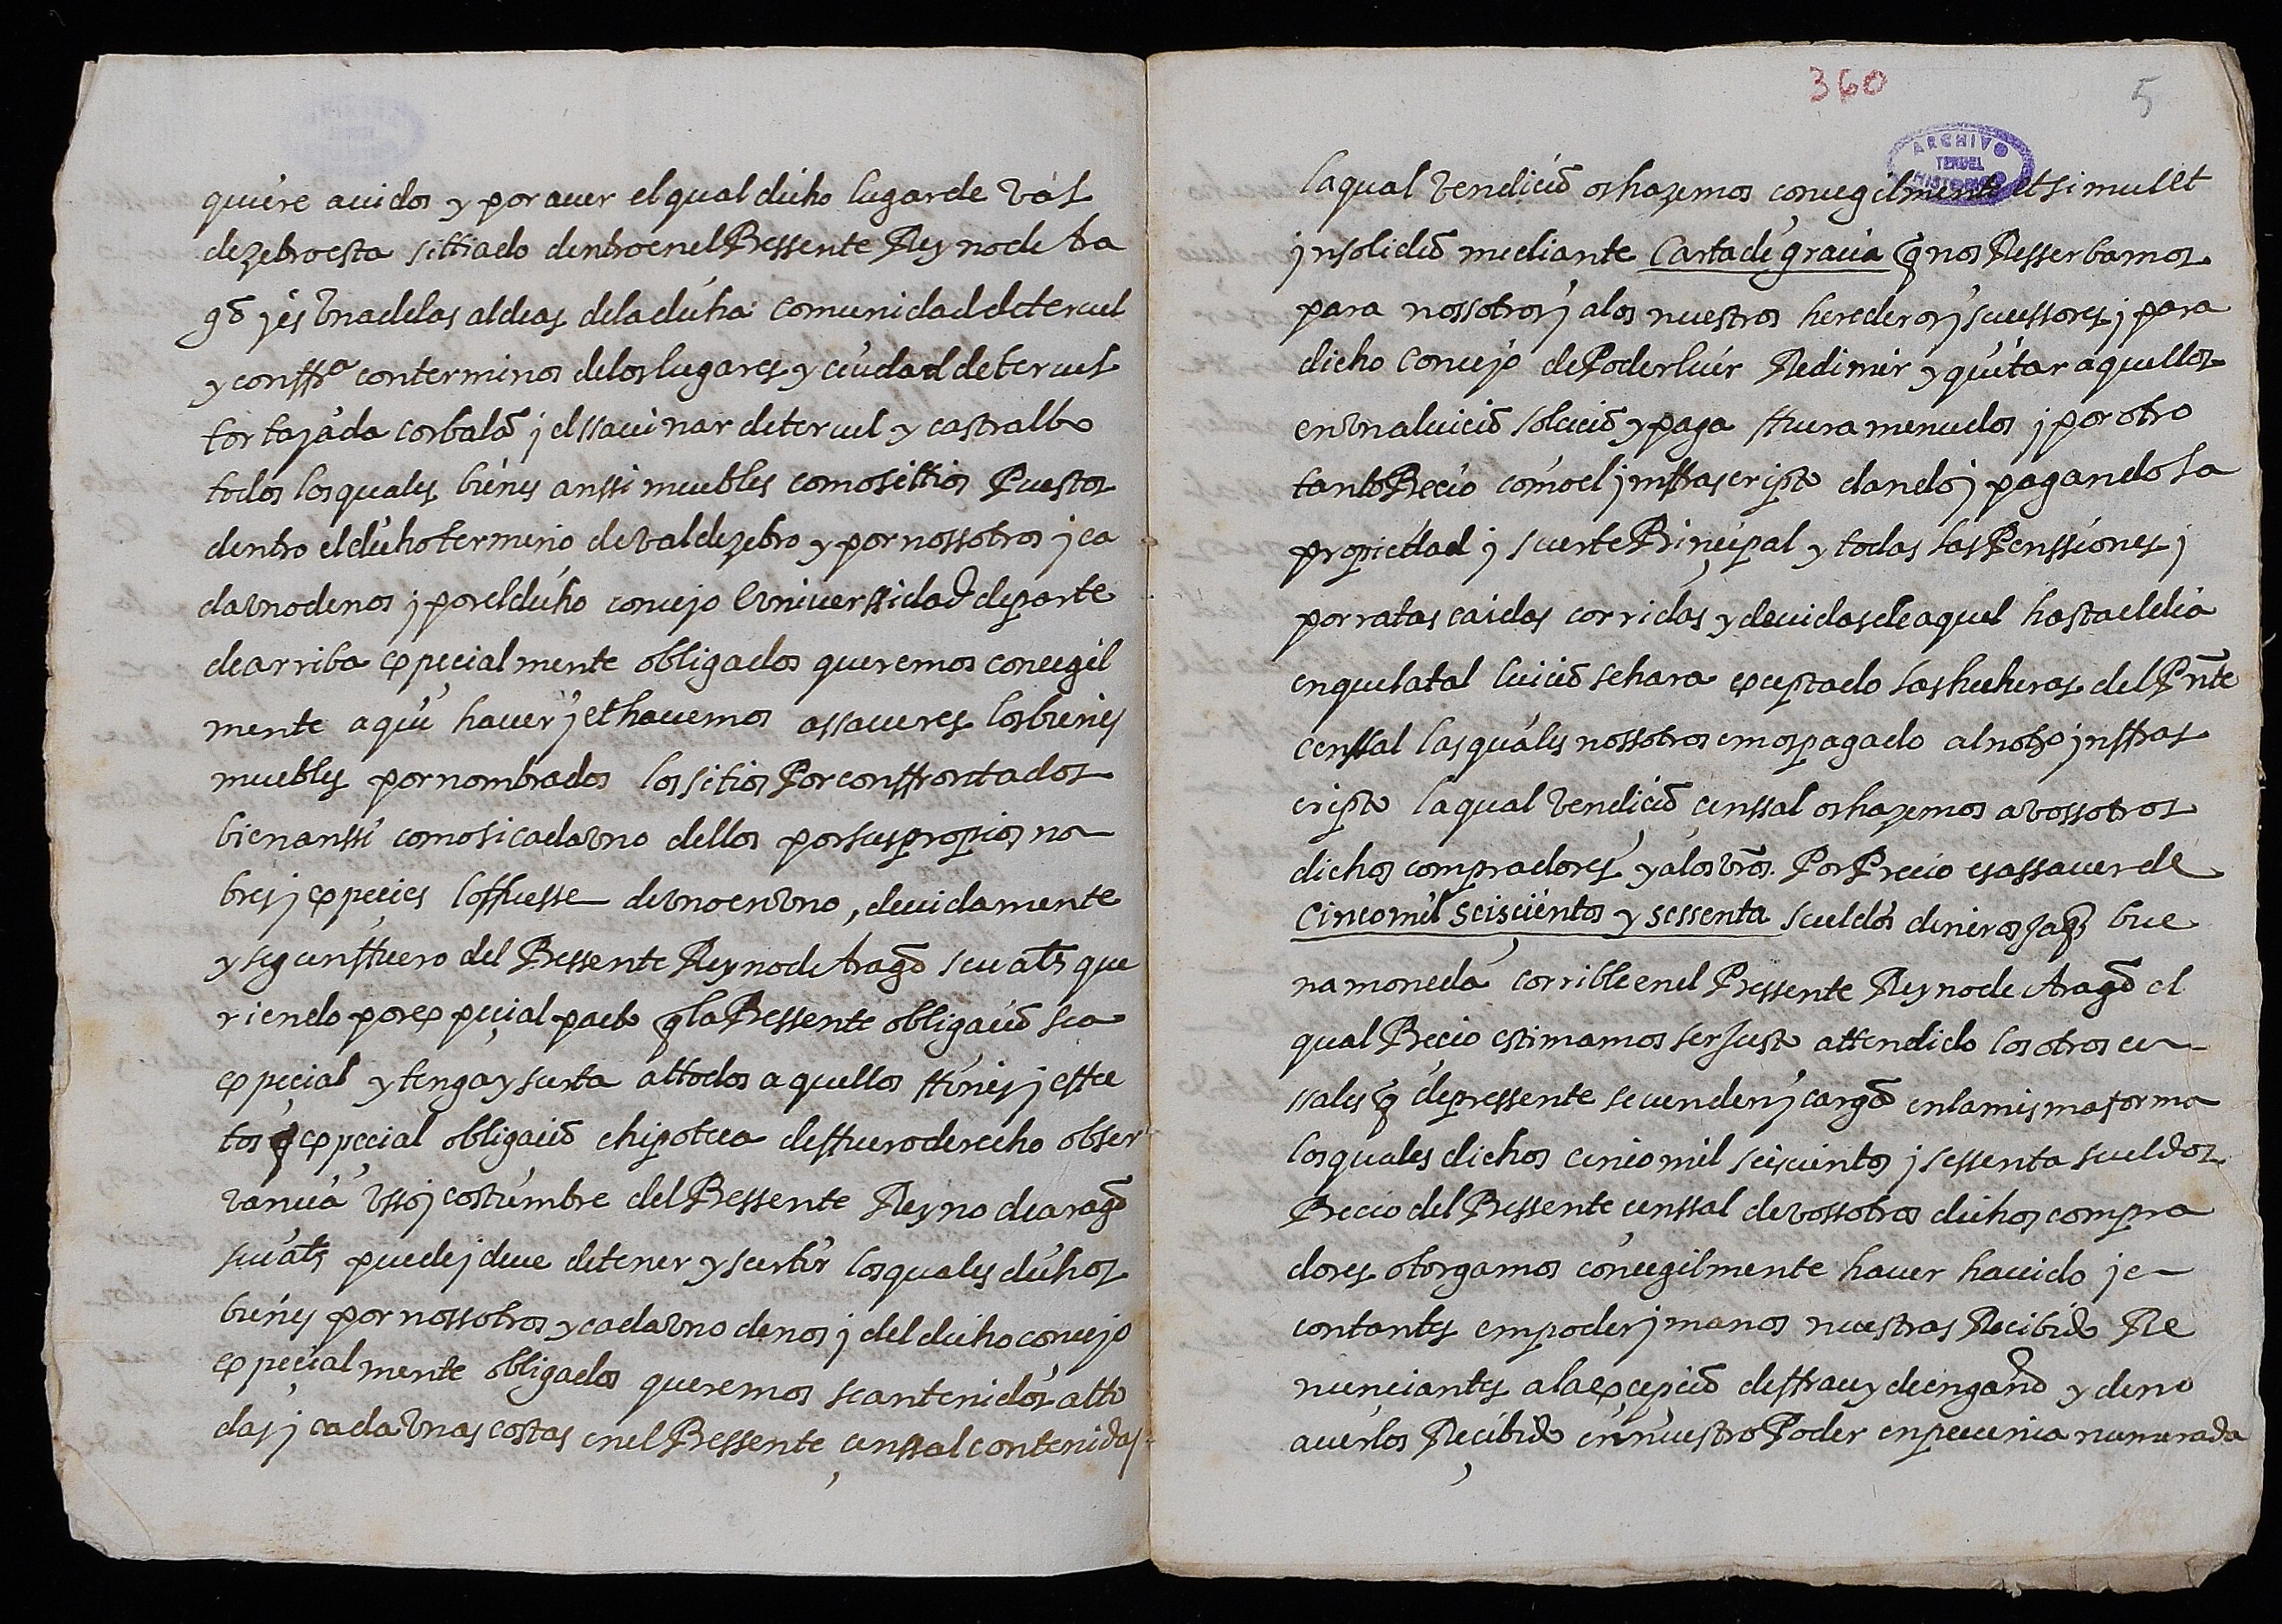 quiere auidos y por auer el qual dicho lugar de val
dezebro esta sittiado dentro en el Pressente Reyno de Ara
gō y es Vna de las aldeas de la dicha comunidad de teruel
y conffra con terminos de los lugares y ciudad de teruel
tortajada corbalā j el ssauinar de teruel y castralbo
todos los quales bienes anssi muebles como sittios Puestos
dentro el dicho termino de valdezebro y por nossotros j ca
da vno de nos j por el dicho concejo Vniuerssidad de parte
de arriba especialmente obligados queremos concegil
mente aqui hauer j et hauemos assaueres los bienes
muebles por nombrados los sitios Por conffrontados
bien anssi como si cada vno dellos por sus propios no
bres j especies lo ffuesse de vno en vno, deuidamente
y segun ffuero del Pressente Reyno de Aragō seu als que
riendo por especial pacto q la Pressente obligaciō sea
especial y tenga y surta atodos aquellos ffines j effec
tos q especial obligaciō e hipoteca de ffuero derecho obser
vancia vsso j costumbre del Pressente Reyno de aragō
siu als puede j deue de tener y surtir los quales dichos
bienes por nossotros y cada vno de nos j del dicho concejo
especialmente obligados queremos sean tenidos atto
das j cada vnas costas en el Pressente censsal contenidas
360
5
ARCHIVO
TERUEL
HISTORICO
la qual vendiciō os hazemos concegilmente et simul et
jnsolidū mediante Carta de gracia q nos Resserbamos
para nossotros j a los nuestros herederos j sucessores j para
dicho concejo de Poder luir Redimir y quitar aquellos
en vna luiciō soluciō y paga ffuera menudos j por otro
tanto Precio como el jnffrascripto dando j pagando la
propiedad j suerte Principal y todas las Penssiones j
porratas caidas corridas y deuidas de aquel hasta el dia
en que la tal luiciō se hara exceptado las hechuras del Pnte
censsal las quales nossotros emos pagado al notro jnffras
cripto la qual vendiciō censsal os hazemos a vossotros
dichos compradores y a los vros. Por Precio es assauer de
Cinco mil seiscientos y sessenta sueldos dineros jaqs bue
na moneda corrible en el Pressente Reyno de Aragō el
qual Precio estimamos ser Justo attendido los otros cen
ssales q de pressente se venden j cargā en la misma forma
los quales dichos cinco mil seiscientos j sessenta sueldos
Precio del Pressente censsal de vossotros dichos compra
dores otorgamos concegilmente hauer hauido j e
contantes em poder j manos nuestras Recibido Re
nunciantes a la excepciō de ffrau y de engaño y de no
auerlos Recibido en nuestro Poder en pecunia numerada